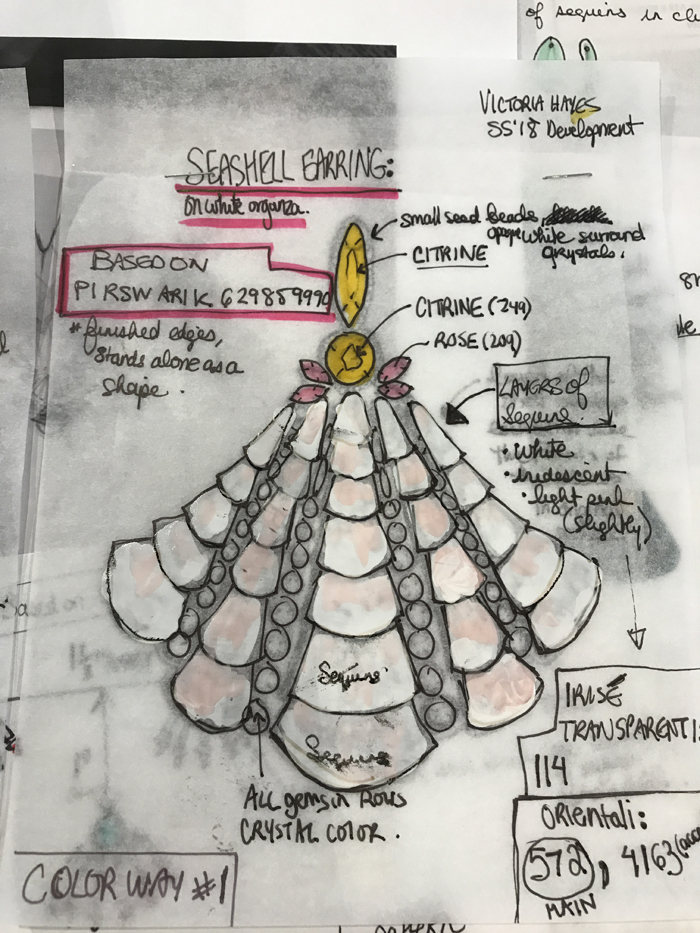 of sequins in
VICTORIA HAYES
SS'18 Development
SEASHELL EARRING:
on white organza.
small seed beads,
opaque white surround
crystals.
CITRINE
BASED ON
* finished edges,
stands alone as a
shape.
CITRINE (249)
ROSE (209)
LAYERS of
Sequins.
• white
• iridescent
• light pink
(slightly)
Sequins
Sequins
IRISÉ
TRANSPARENTI
114
ALL gems in ROWS
CRYSTAL COLOR.
ORIENTALI:
572, 4163
MAIN
COLORWAY #1